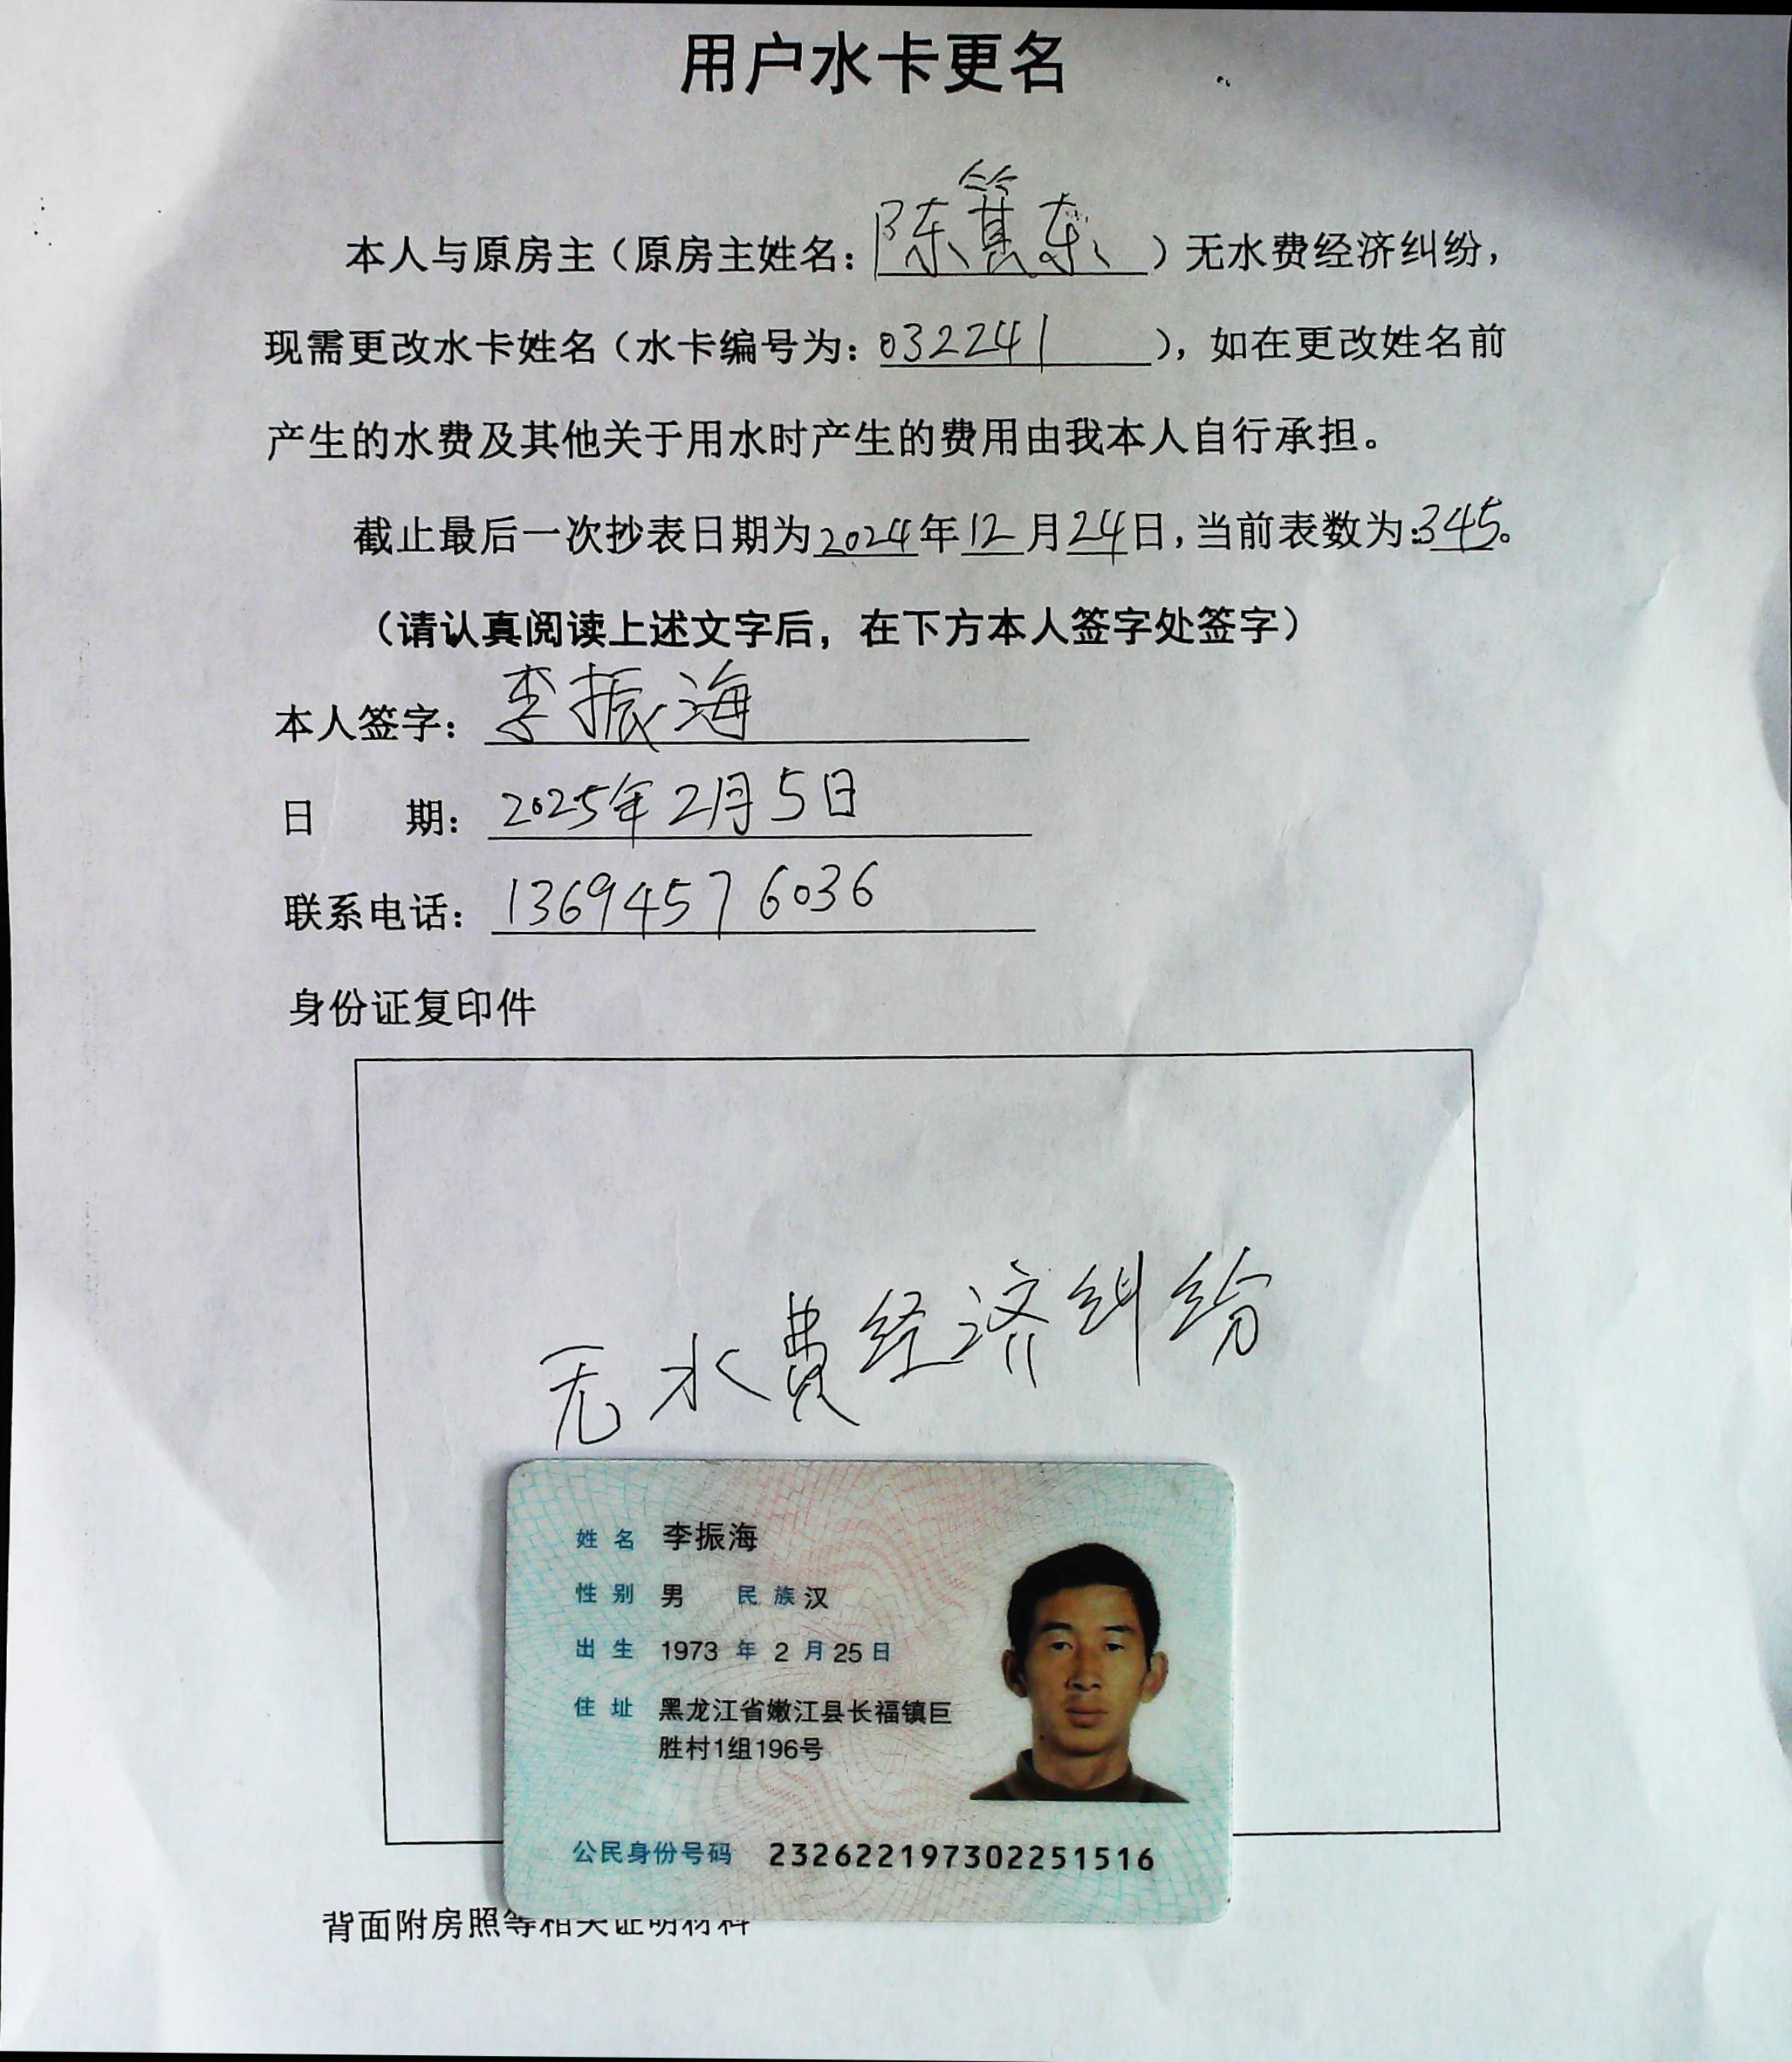 用户水卡更名
本人与原房主（原房主姓名：陈箕东）无水费经济纠纷，
现需更改水卡姓名（水卡编号为：032241），如在更改姓名前
产生的水费及其他关于用水时产生的费用由我本人自行承担。
截止最后一次抄表日期为2024年12月24日，当前表数为：345。
（请认真阅读上述文字后，在下方本人签字处签字）
本人签字：李振海
日 期：2025年2月5日
联系电话：13694576036
身份证复印件
无水费经济纠纷
姓名 李振海
性别 男 民族 汉
出生 1973 年 2 月 25 日
住址 黑龙江省嫩江县长福镇巨
胜村1组196号
公民身份号码 232622197302251516
背面附房照等相关证明材料